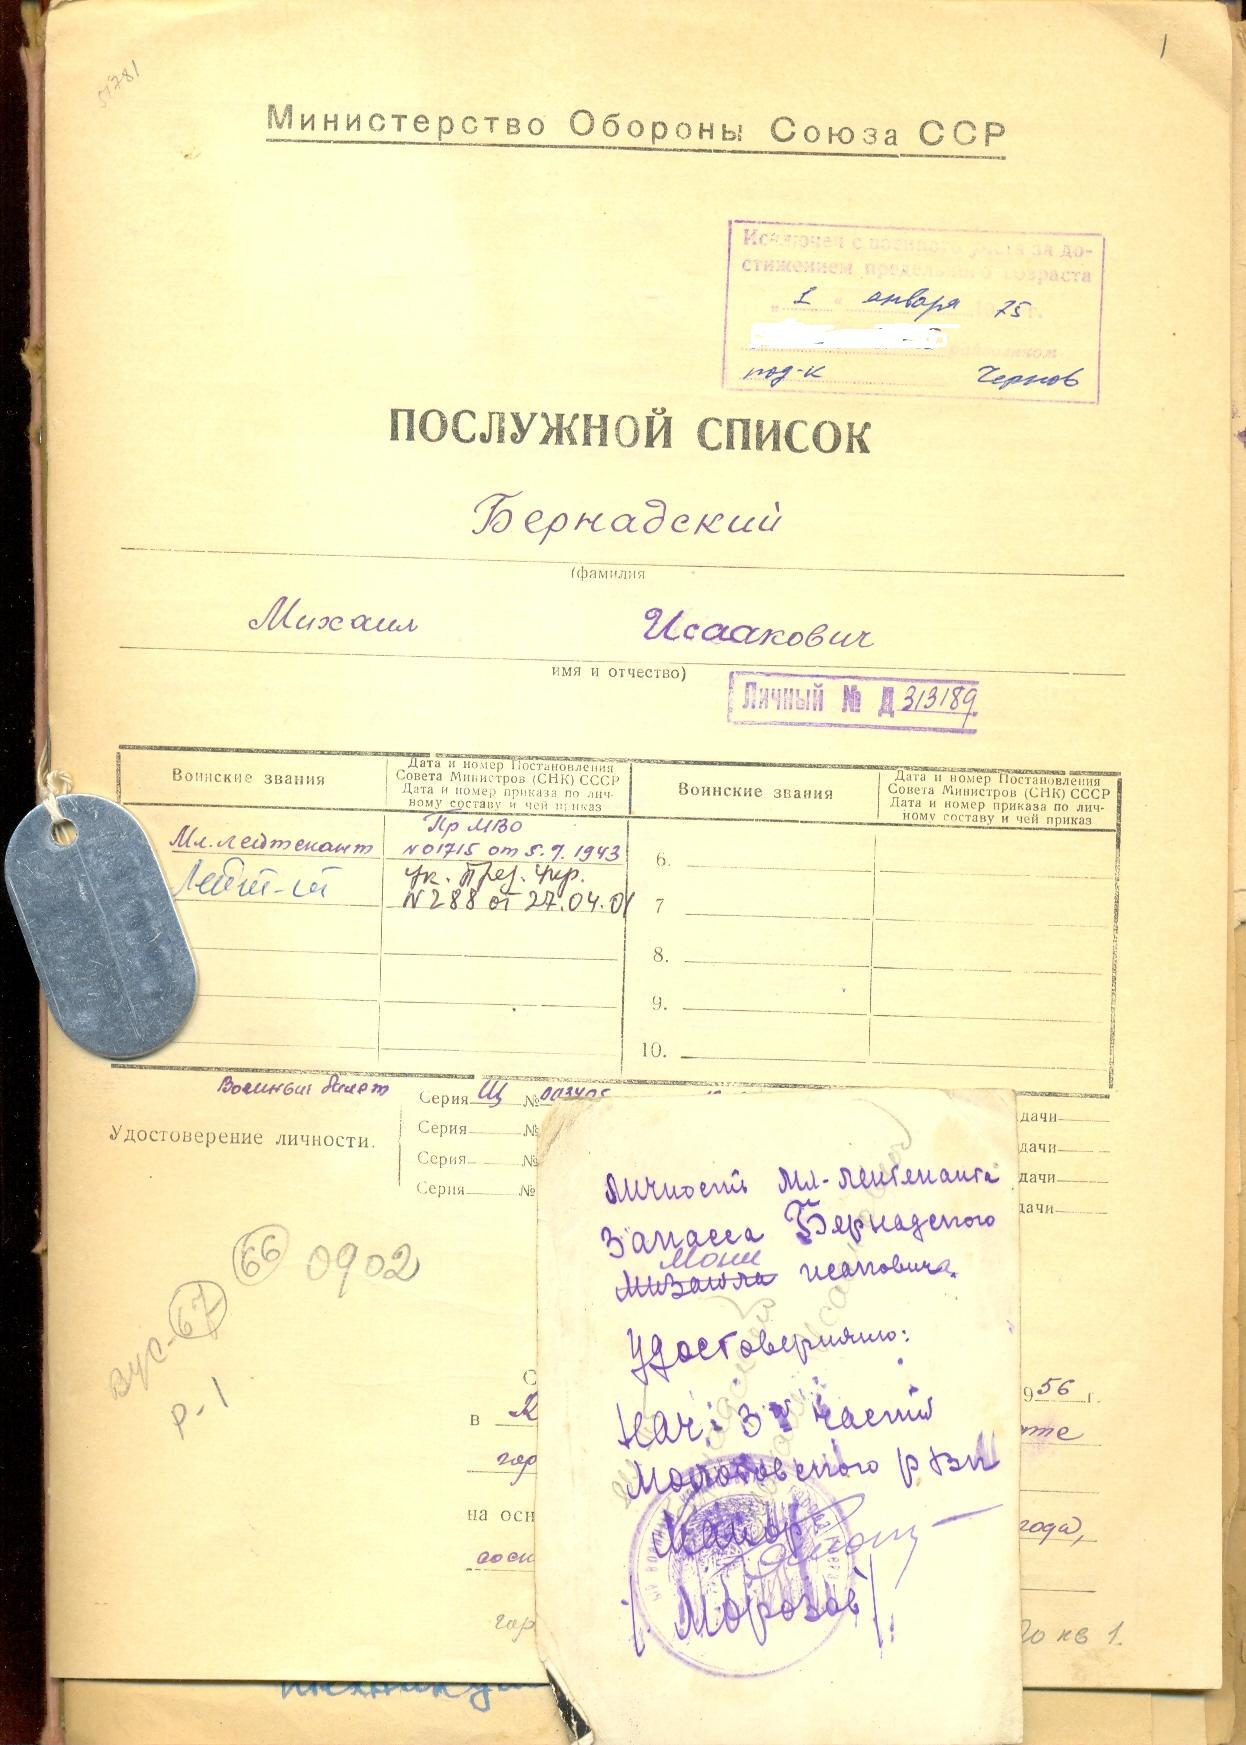 51781
1
Министерство Обороны Союза ССР
Исключен с военного учета за до-
стижением предельного возраста
„ 1 “ января 1975 г.
райвоенком
под-к Чернов
ПОСЛУЖНОЙ СПИСОК
Бернадский
(фамилия
Михаил Исаакович
имя и отчество)
Личный № Д 313189
Воинские звания
Дата и номер Постановления
Совета Министров (СНК) СССР
Дата и номер приказа по лич-
ному составу и чей приказ
Воинские звания
Дата и номер Постановления
Совета Министров (СНК) СССР
Дата и номер приказа по лич-
ному составу и чей приказ
Мл. лейтенант
Пр МВО
№ 01715 от 5.9.1943
Лейт-нт
Ук. През. Укр.
N 288 от 27.04.01
6.
7
8.
9.
10.
Военный билет
Серия Щ №
Удостоверение личности.
Серия №
Серия №
Серия №
дачи
дачи
дачи
дачи
66 0902
ВУС-67
Р-1
Личность мл-лейтенанта
запасса Бернадского
Мони
Михаила Исаковича
удостоверяю:
Нач: 3 части
Молотовского РВК
Майор
/Морозов/
956 г.
в
гор
на осн
года,
гор
кв 1.